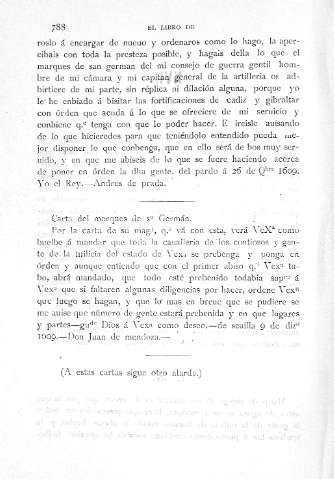 788 EL LIBRO DE
roslo á encargar de nueuo y ordenaros como lo hago, la aper-
cibais con toda la presteza posible, y hagais della lo que el
marques de san german del mi consejo de guerra gentil hom-
bre de mi cámara y mi capitan general de la artilleria os ad-
birtiere de mi parte, sin réplica ni dilación alguna, porque yo
le he enbiado á bisitar las fortificaciones de cadiz y gibraltar
con órden que acuda á lo que se ofreciere de mi servicio y
conbiene q.e tenga con que lo poder hacer. E ireisle auisando
de lo que hicieredes para que teniéndolo entendido pueda me-
jor disponer lo que conbenga, que en ello seré de bos muy ser-
uido, y en que me abiseis de lo que se fuere haciendo acerca
de poner en órden la dha gente. del pardo á 26 de Qbre 1609.
Yo el Rey.—Andres de prada.
Carta del marques de sn Germán.
Por la carta de su magd, q.e vá con esta, verá VeXa como
buelbe á mandar que toda la caualleria de los contiosos y gen-
te de la milicia del estado de Vexa se prebenga y ponga en
órden y aunque entiendo que con el primer abiso q.e Vexa tu-
bo, abrá mandado, que todo esté prebenido todabia supco á
Vexa que si faltaren algunas diligencias por hacer, ordene Vexa
que luego se hagan, y que lo mas en breue que se pudiere se
me auise que número de gente estará prebenida y en que lugares
y partes—gude Dios á Vexa como deseo.—de seuilla 9 de dizre
1609.—Don Juan de mendoza.—
(A estas cartas sigue otro alarde.)